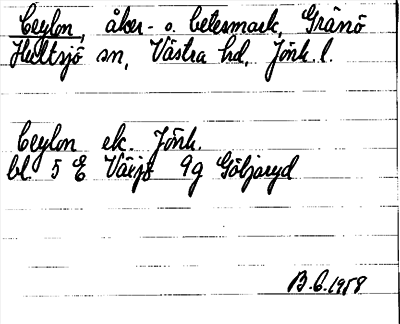 Ceylon, åker- o. betesmark, Gränö
Hultsjö sn, Västra hd, Jönk. l.
Ceylon ek. Jönk.
bl. 5 E Växjö 9g Göljaryd
B.C. 1958